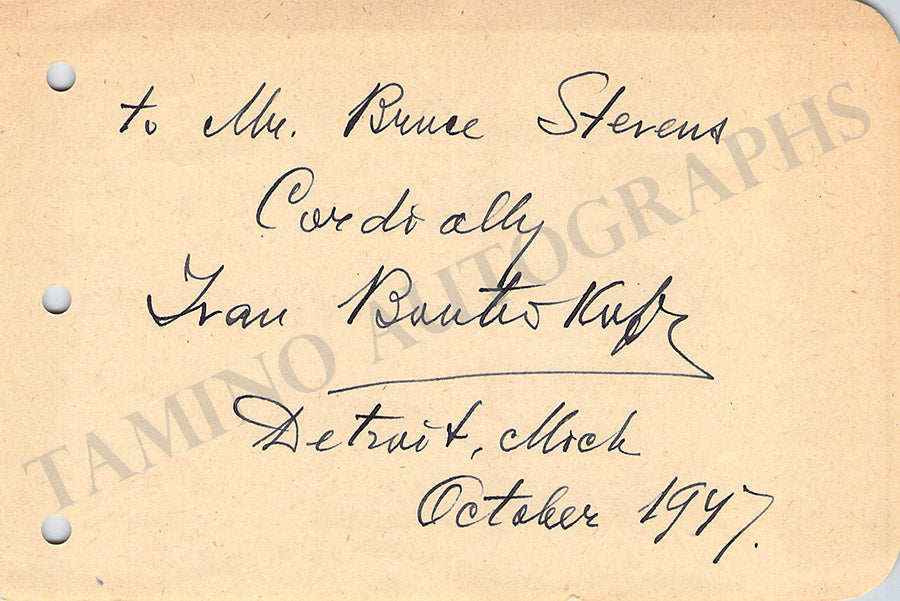 to Mr. Bruce Stevens
Cordially
Ivan Boutnikoff
Detroit, Mich
October 1947.
TAMINO AUTOGRAPHS